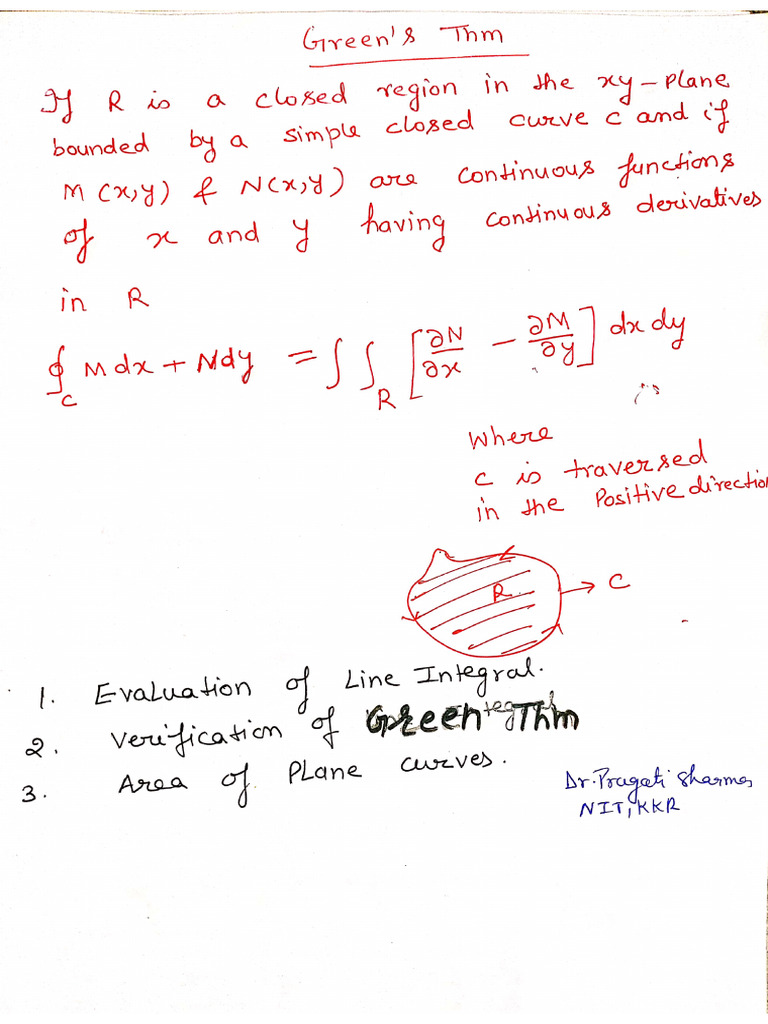 Green's Thm
If R is a closed region in the xy-plane
bounded by a simple closed curve c and if
M(x,y) & N(x,y) are continuous functions
of x and y having continuous derivatives
in R
∮_C M dx + N dy = ∫∫_R [∂N/∂x − ∂M/∂y] dx dy
Where
c is traversed
in the Positive direction
R
C
1. Evaluation of Line Integral.
2. Verification of Green Thm
3. Area of Plane curves.
Dr. Pragati Sharma,
NIT, KKR